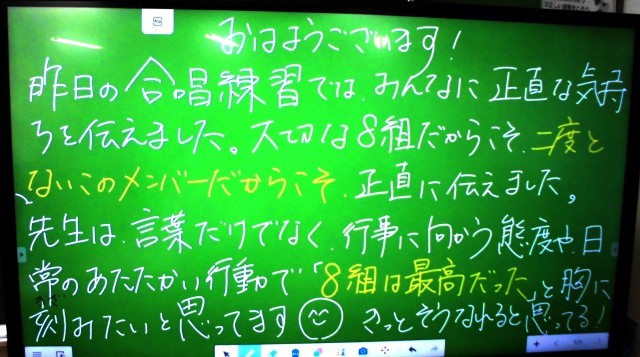 おはようございます!
昨日の合唱練習では、みんなに正直な気持
ちを伝えました。大切な8組だからこそ、二度と
ないこのメンバーだからこそ、正直に伝えました。
先生は、言葉だけでなく、行事に向かう態度や、日
常のあたたかい行動で「8組は最高だった」と胸に
刻みたいと思ってます きっとそうなれると思ってる!